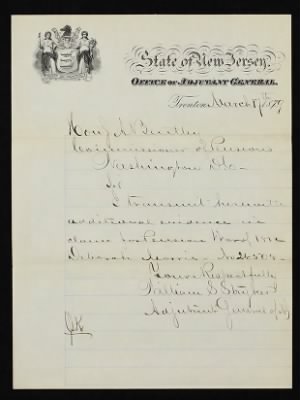 State of New Jersey,
Office of Adjutant General.
Trenton March 17th 1879
Hon J A Bentley
Commissioner of Pensions
Washington D.C.
Sir
I transmit herewith
additional evidence in
claim for Pension War of 1812
Deborah Morris - No
Yours Respectfully
William S Stryker
Adjutant General of NJ